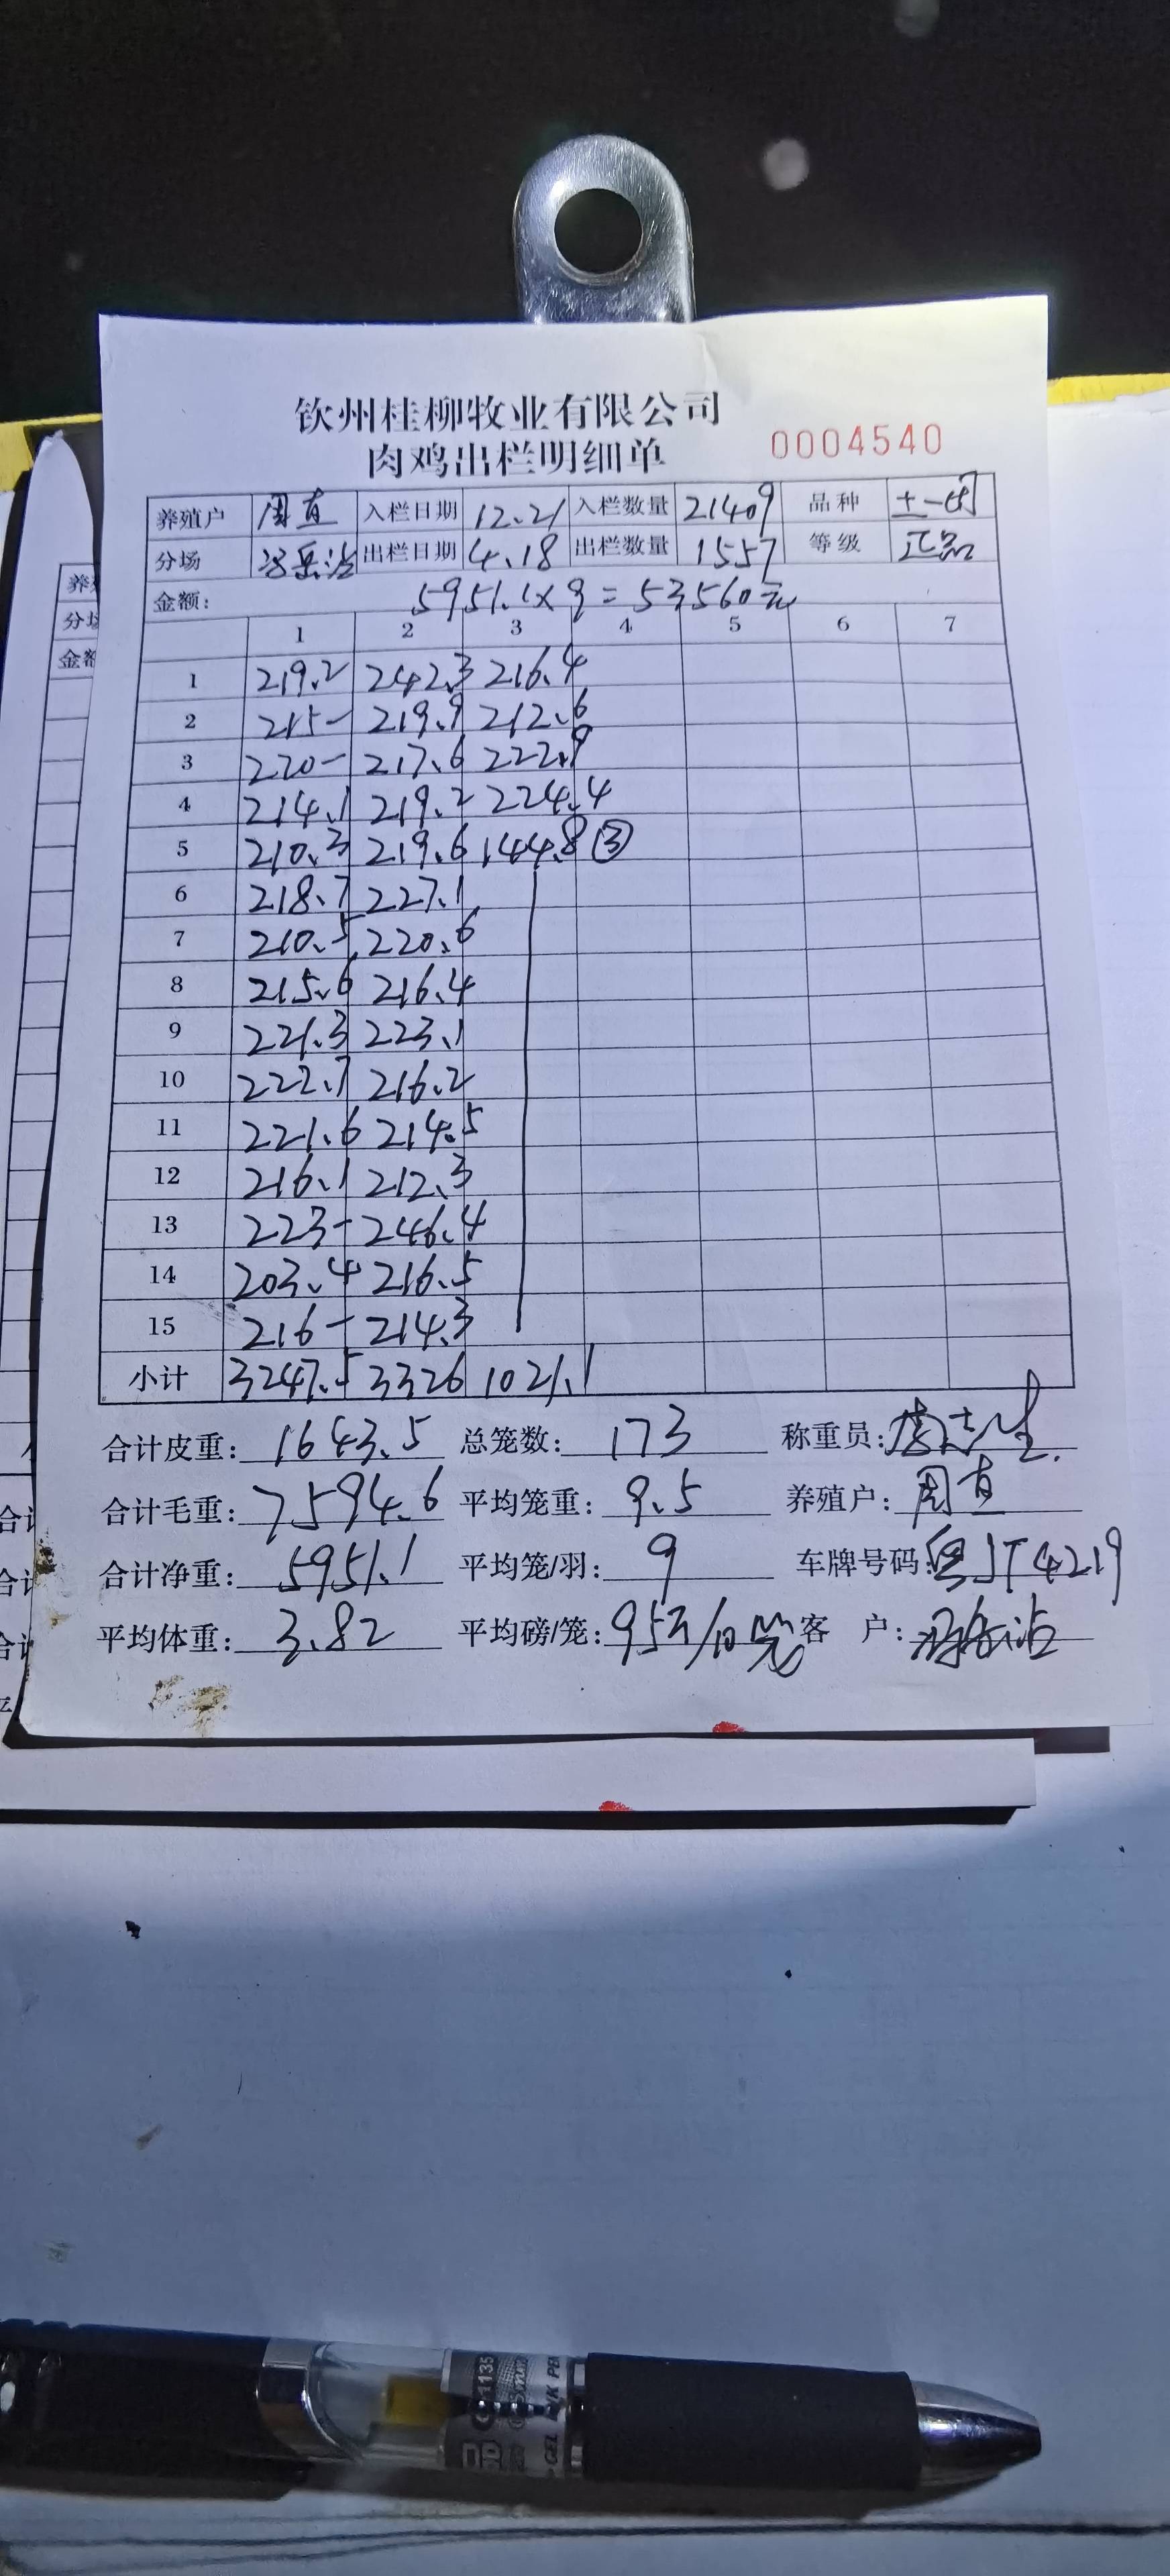 钦州桂柳牧业有限公司
肉鸡出栏明细单 0004540
养殖户 周直 入栏日期 12.21 入栏数量 21409 品种 土一
分场 出栏日期 4.18 出栏数量 1557 等级 正品
金额: 5951.1×9=53560元
1 2 3 4 5 6 7
1 219.2 242.3 216.4
2 215- 219.9 212.6
3 220- 217.6 222.9
4 214.1 219.2 224.4
5 210.3 219.6 144.8 ③
6 218.7 227.1
7 210.5 220.6
8 215.6 216.4
9 221.3 223.1
10 222.7 216.2
11 221.6 214.5
12 216.1 212.3
13 223- 246.4
14 203.4 216.5
15 216- 214.3
小计 3247.5 3326 1021.1
合计皮重: 1643.5 总笼数: 173 称重员:
合计毛重: 7594.6 平均笼重: 9.5 养殖户: 周直
合计净重: 5951.1 平均笼/羽: 9 车牌号码: 粤JT4219
平均体重: 3.82 平均磅/笼: 95 /10笼 客 户:
养
分场
金额
合计
合计
合计
平
1135
GEL
PE